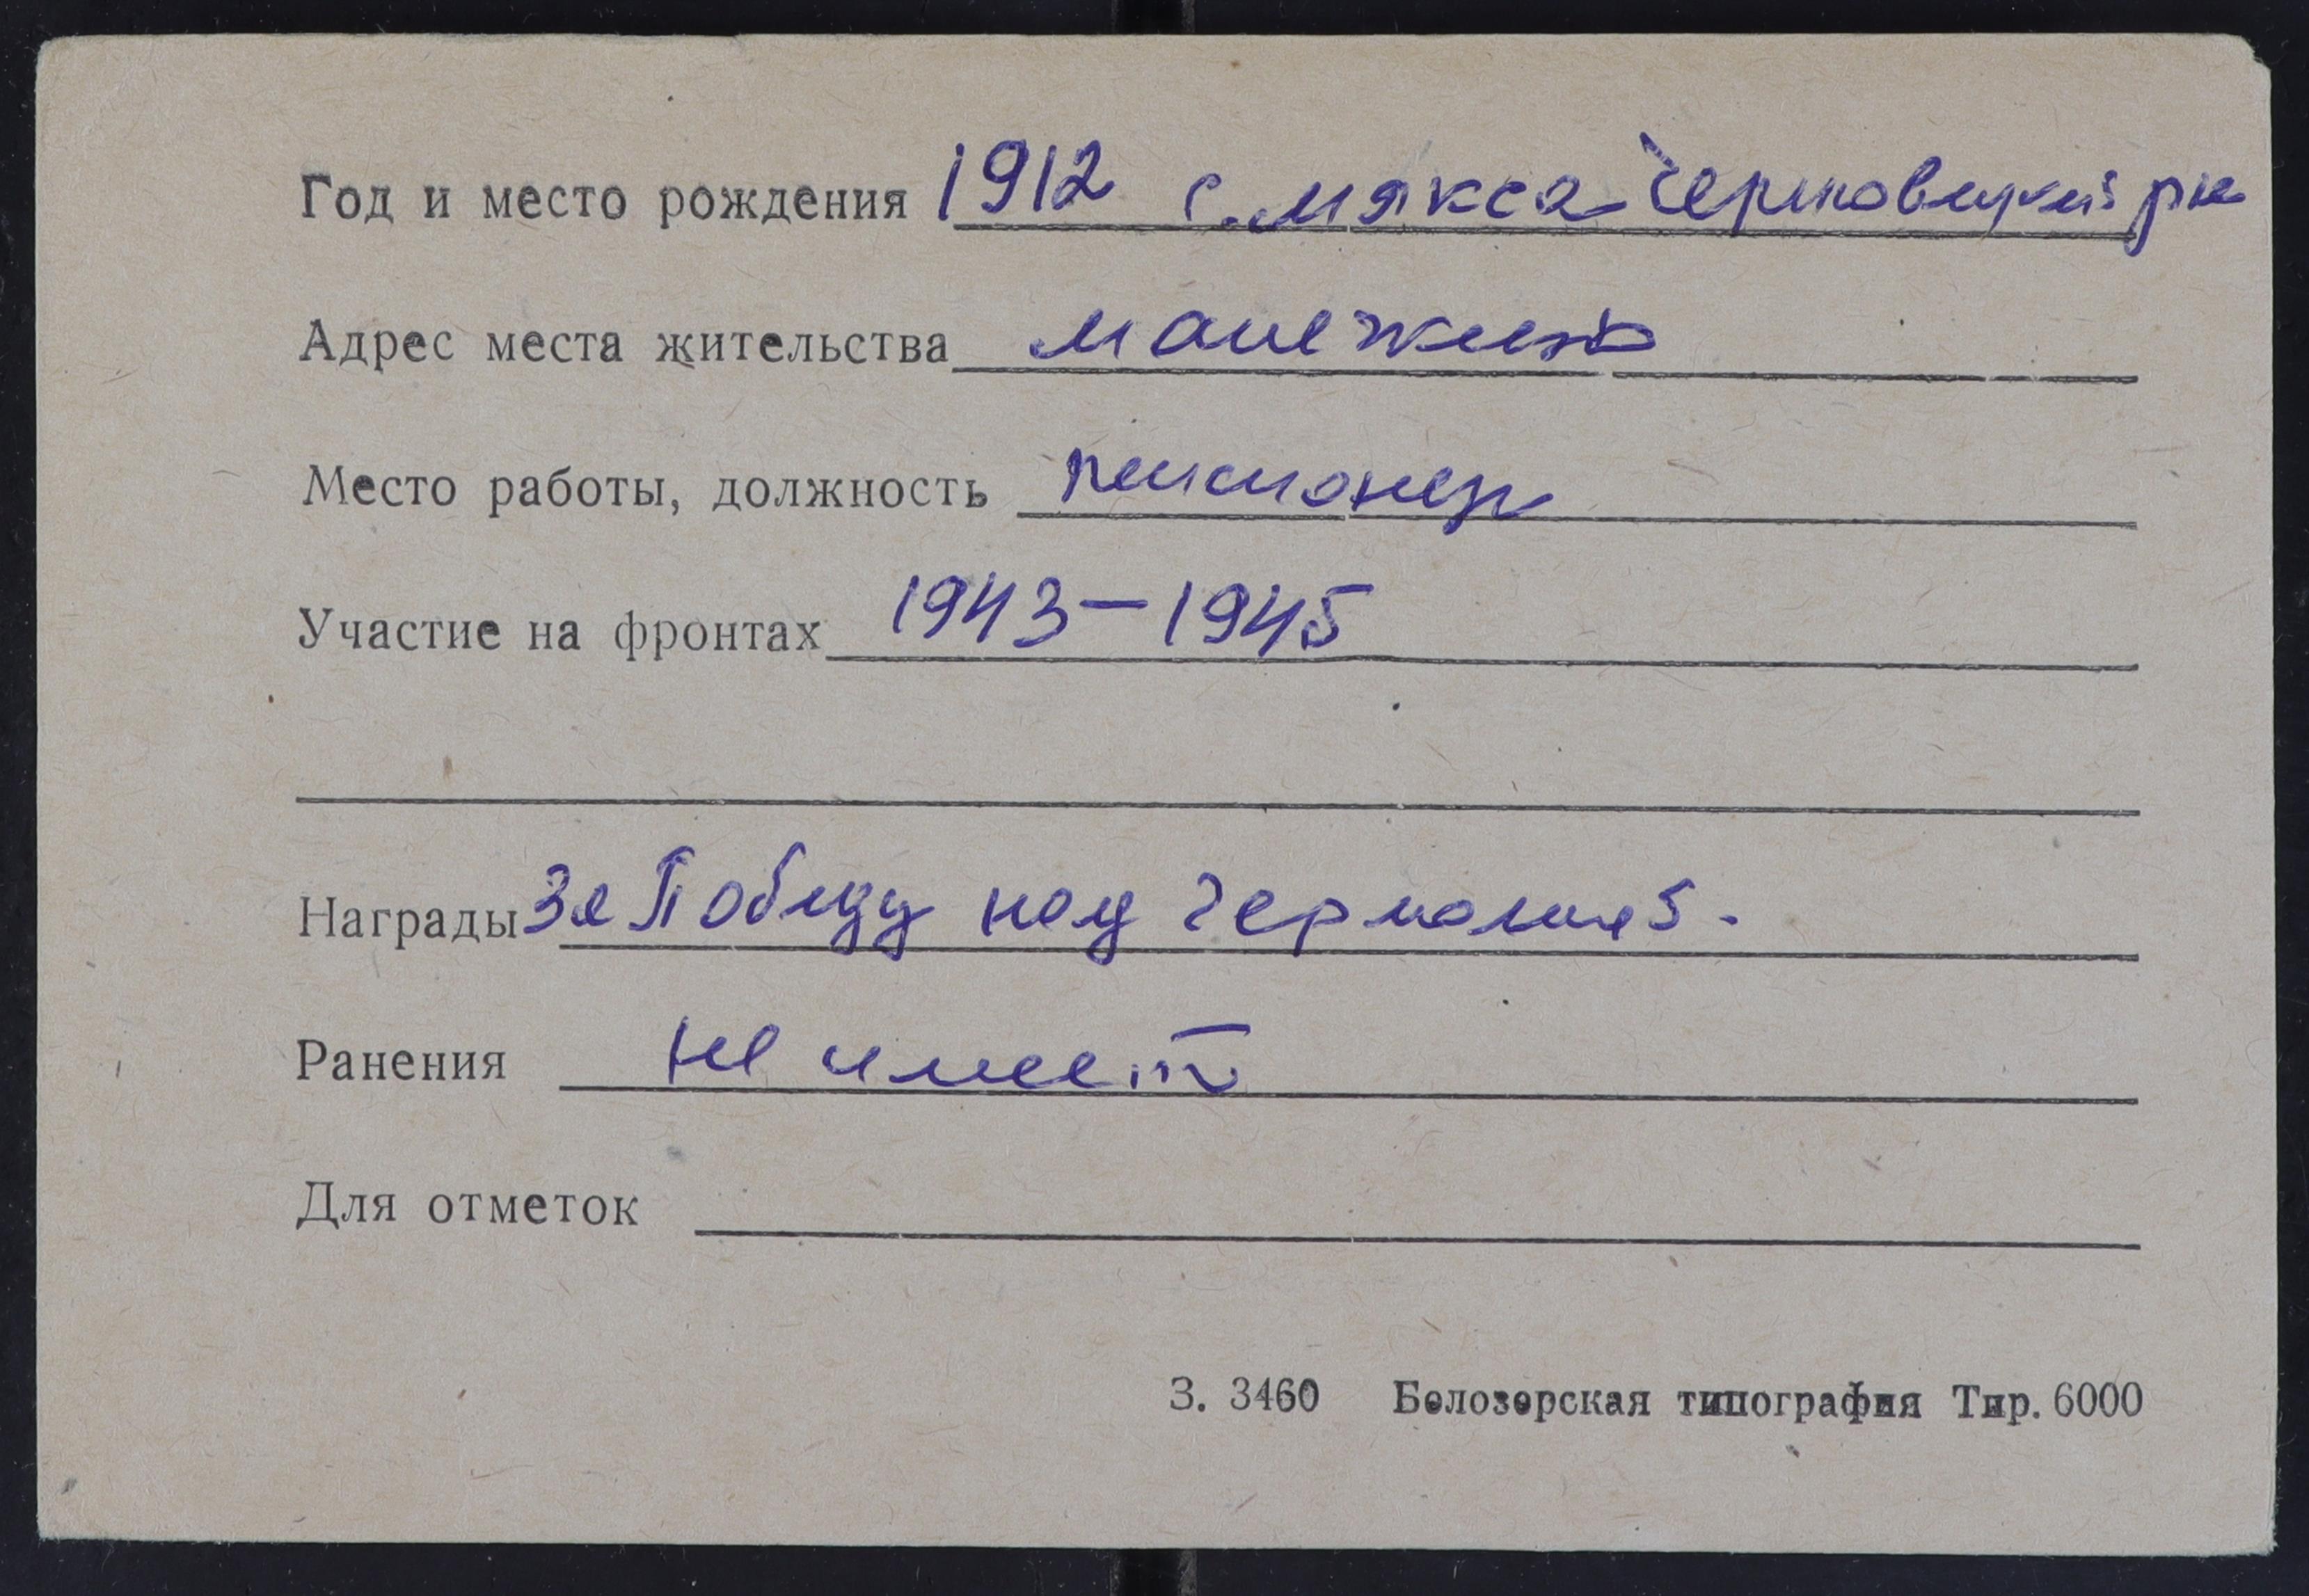 Год и место рождения 1912 с. Мякса Череповецкий рн
Адрес места жительства
Место работы, должность пенсионер
Участие на фронтах 1943-1945
Награды За Победу над Германией.
Ранения не имеет
Для отметок
З. 3460 Белозерская типография Тир. 6000